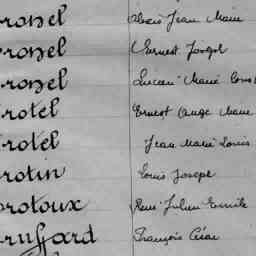 ronel Alexis Jean Marie
ronel Ernest Joseph
ronel Lucien Marie
rotel Ernest Ange Marie
rotel Jean Marie Louis
rotin Louis Joseph
rotoux René Julien Emile
ruffard François César